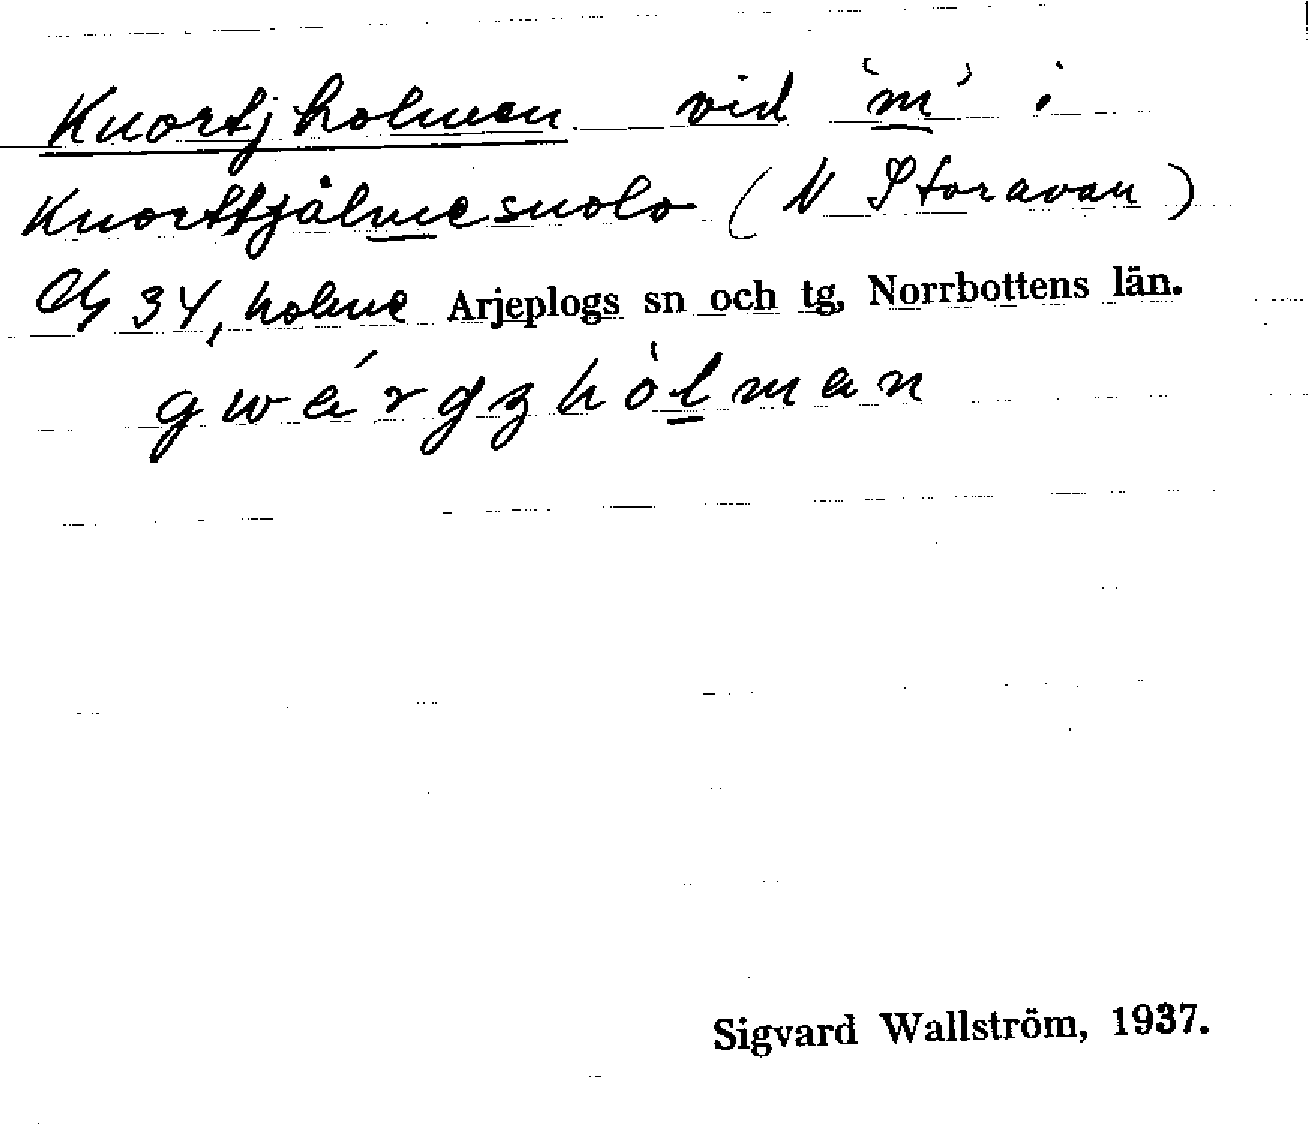 Kuortjholmen vid 'm' i
Kuorttjålmesuolo (N Storavan)
34, holme Arjeplogs sn och tg, Norrbottens län.
Sigvard Wallström, 1937.